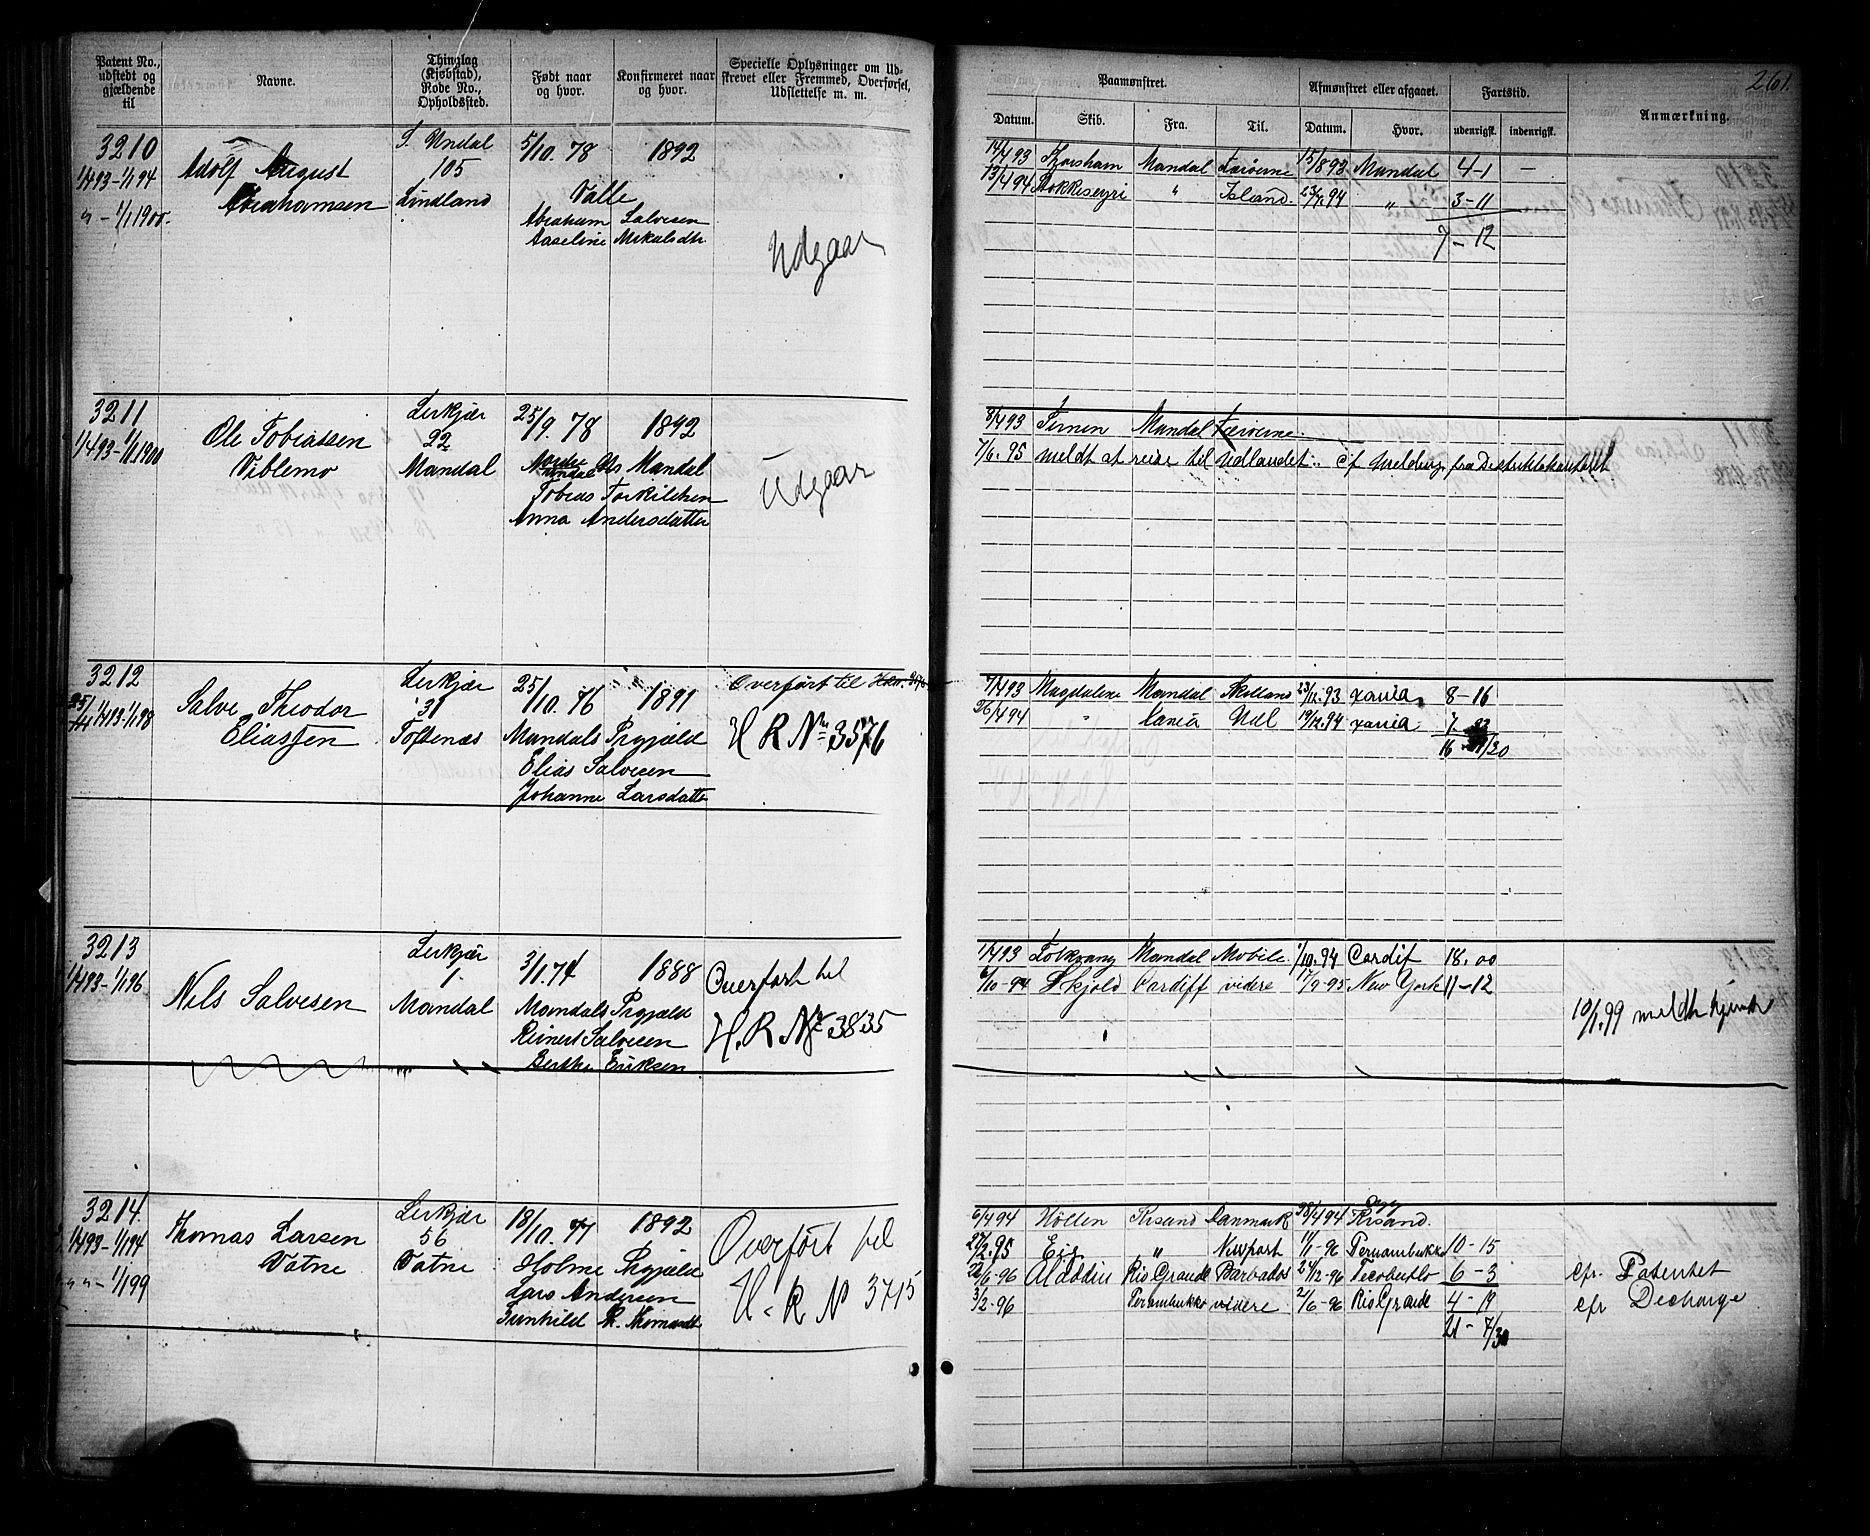 261.
Patent No., udstedt og gjældende til
Navne.
Thinglag (Kjøbstad), Rode No., Opholdssted.
Født naar og hvor.
Konfirmeret naar og hvor.
Specielle Oplysninger om Udskrevet eller Fremmed, Overførsel, Udslettelse m. m.
Paamønstret.
Afmønstret eller afgaaet.
Fartstid.
Anmærkning.
Datum.
Skib.
Fra.
Til.
Datum.
Hvor.
udenrigsk.
indenrigsk.
3210
1/4 93-1/1 94
" - 1/1 1900.
Adolf August
Abrahamsen
S. Undal
105
Lindland
5/10. 78
1892
Valle
Abraham Salvesen
Aaseline Mikalsdtr
Udgaar
14/4 93 Thorsham Mandal Færøerne 15/8 93 Mandal 4-1 -
13/4 94 Stokkiseyri " Island 23/7 94 " 3-11
7-12
3211
1/4 93-1/1 1900
Ole Tobiassen
Viblemo
Lerkjær
22
Mandal
25/9. 78
1892
Mandal
Tobias Torkildsen
Anna Andersdatter
Udgaar
8/4 93 Ternen Mandal Færøerne
7/6. 95 meldt at reise til Udlandet. cf melding fra Distriktskontoret
3212
1/4 93-1/1 98
Salve Theodor
Eliassen
Lerkjær
31
Toftenæs
25/10. 76
1891
Mandals Prgjæld
Elias Salvesen
Johanne Larsdatter
Overført til
H R No 3576
7/4 93 Magdalene Mandal Skotland 23/12. 93 Xania 8-16
26/4 94 " Xania Udl 19/12. 94 Xania 7
3213
1/4 93-1/1 96
Nels Salvesen
Lerkjær
1
Mandal
3/1. 74
1888
Mandals Prgjæld
Reinert Salvesen
Berthe Eriksen
Overført til
H. R No 3835
1/4 93 Folkvang Mandal Mobile 1/10. 94 Cardif 18. 00
6/10-94 Skjold Cardiff videre 17/9-95 New York 11-12
10/1. 99 meldt hjemk
3214.
1/4 93-1/1 94
" " - 1/1 99
Thomas Larsen
Vatne
Lerkjær
56
Vatne
18/10. 77
1892
Holme Prgjæld
Lars Andersen
Gunhild
Overført til
H. R No 3715
6/4 94 Høllen Krsand Danmark 28/4 94 Krsand.
27/2. 95 " Newport 11/1-96 Pernambukko 10-15
22/6-96 Aladdin Rio Grande Barbados 24/12-96 6-3 cfr. Patentet
3/2-96 Pernambukko videre 2/6-96 Rio Grande 4-19 cfr Decharge
21-7/30